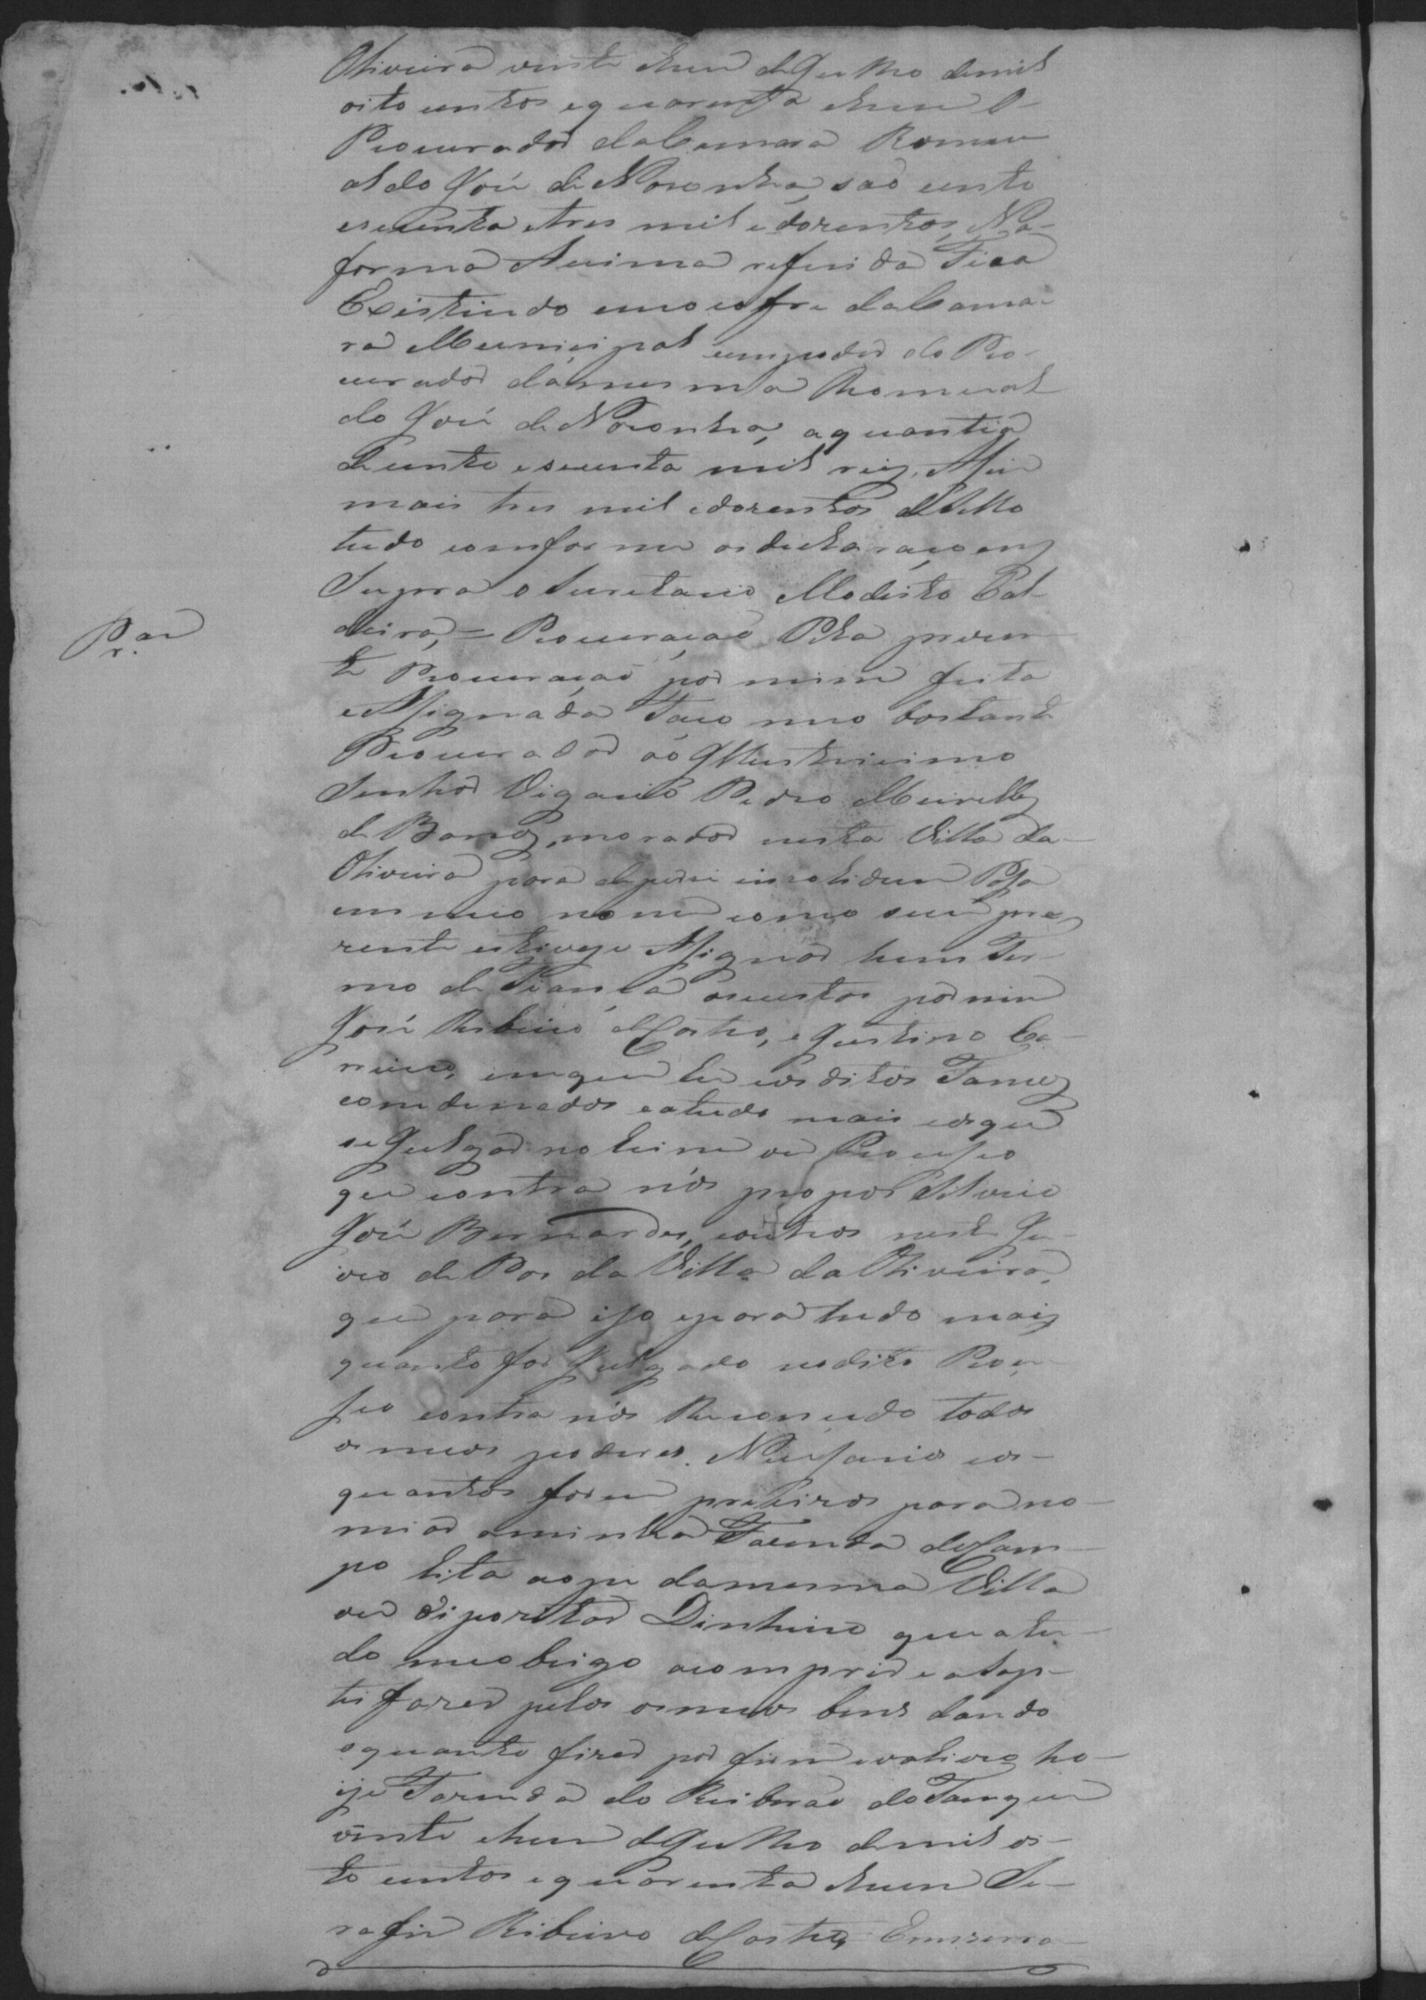 Oliveira vinte ehum deJulho demil
oito centos equarenta ehum O
Procurador daCamara Romu
aldo José de Noronha, são cento
esecenta etres mil edozentos, Na
forma Acima referida Fica
Existindo emocofre daCama
ra Municipal empoder do Pro
curador damesma Romual
do José de Noronha, aquantia
de cento esecenta mil reis, Assim
mais tres mil edozentos deSello
tudo comforme as declaraçoens
Supra oSecretario Modesto Cal
deira, = Procuração Pela prezen
te Procuração por mim feita
eAssignada Faço meo bastante
Procurador ao Illustricimo
Senhor Vigario Pedro Meirelles
de Barros, morador nesta Villa da
Oliveira para depersi insolidum Possa
em meo nome como seu pre
zente estivesse Assignar hum Ter
mo de Fiança os custos por mim
José Ribeiro deCastro, eJustino
em que
comdenados eatudo mais eoque
se Julgar no Crime ou Processo
que contra nós propos
José Bernardes, eoutros neste Ju
izo de Pas da Villa da Oliveira,
que para isso epara tudo mais
quanto for Julgado nodito Proce
sso contra nós Reconcedo todos
osmeos poderes Nessarios eos
quantos forem precizos para no
miar aminha Fazenda deCam
po Cita aope damesma Villa
ou dipozitar Dinheiro que atu
do meobrigo acomprir eaSap
tisfazer pelos osmeos bens dando
oquanto fizer por firme evaliozo ho
ije Fazenda do Ribeirão doTanque
vinte ehum deJulho demil oi
to centos equarenta ehum Se
rafim Ribeiro deCastro,